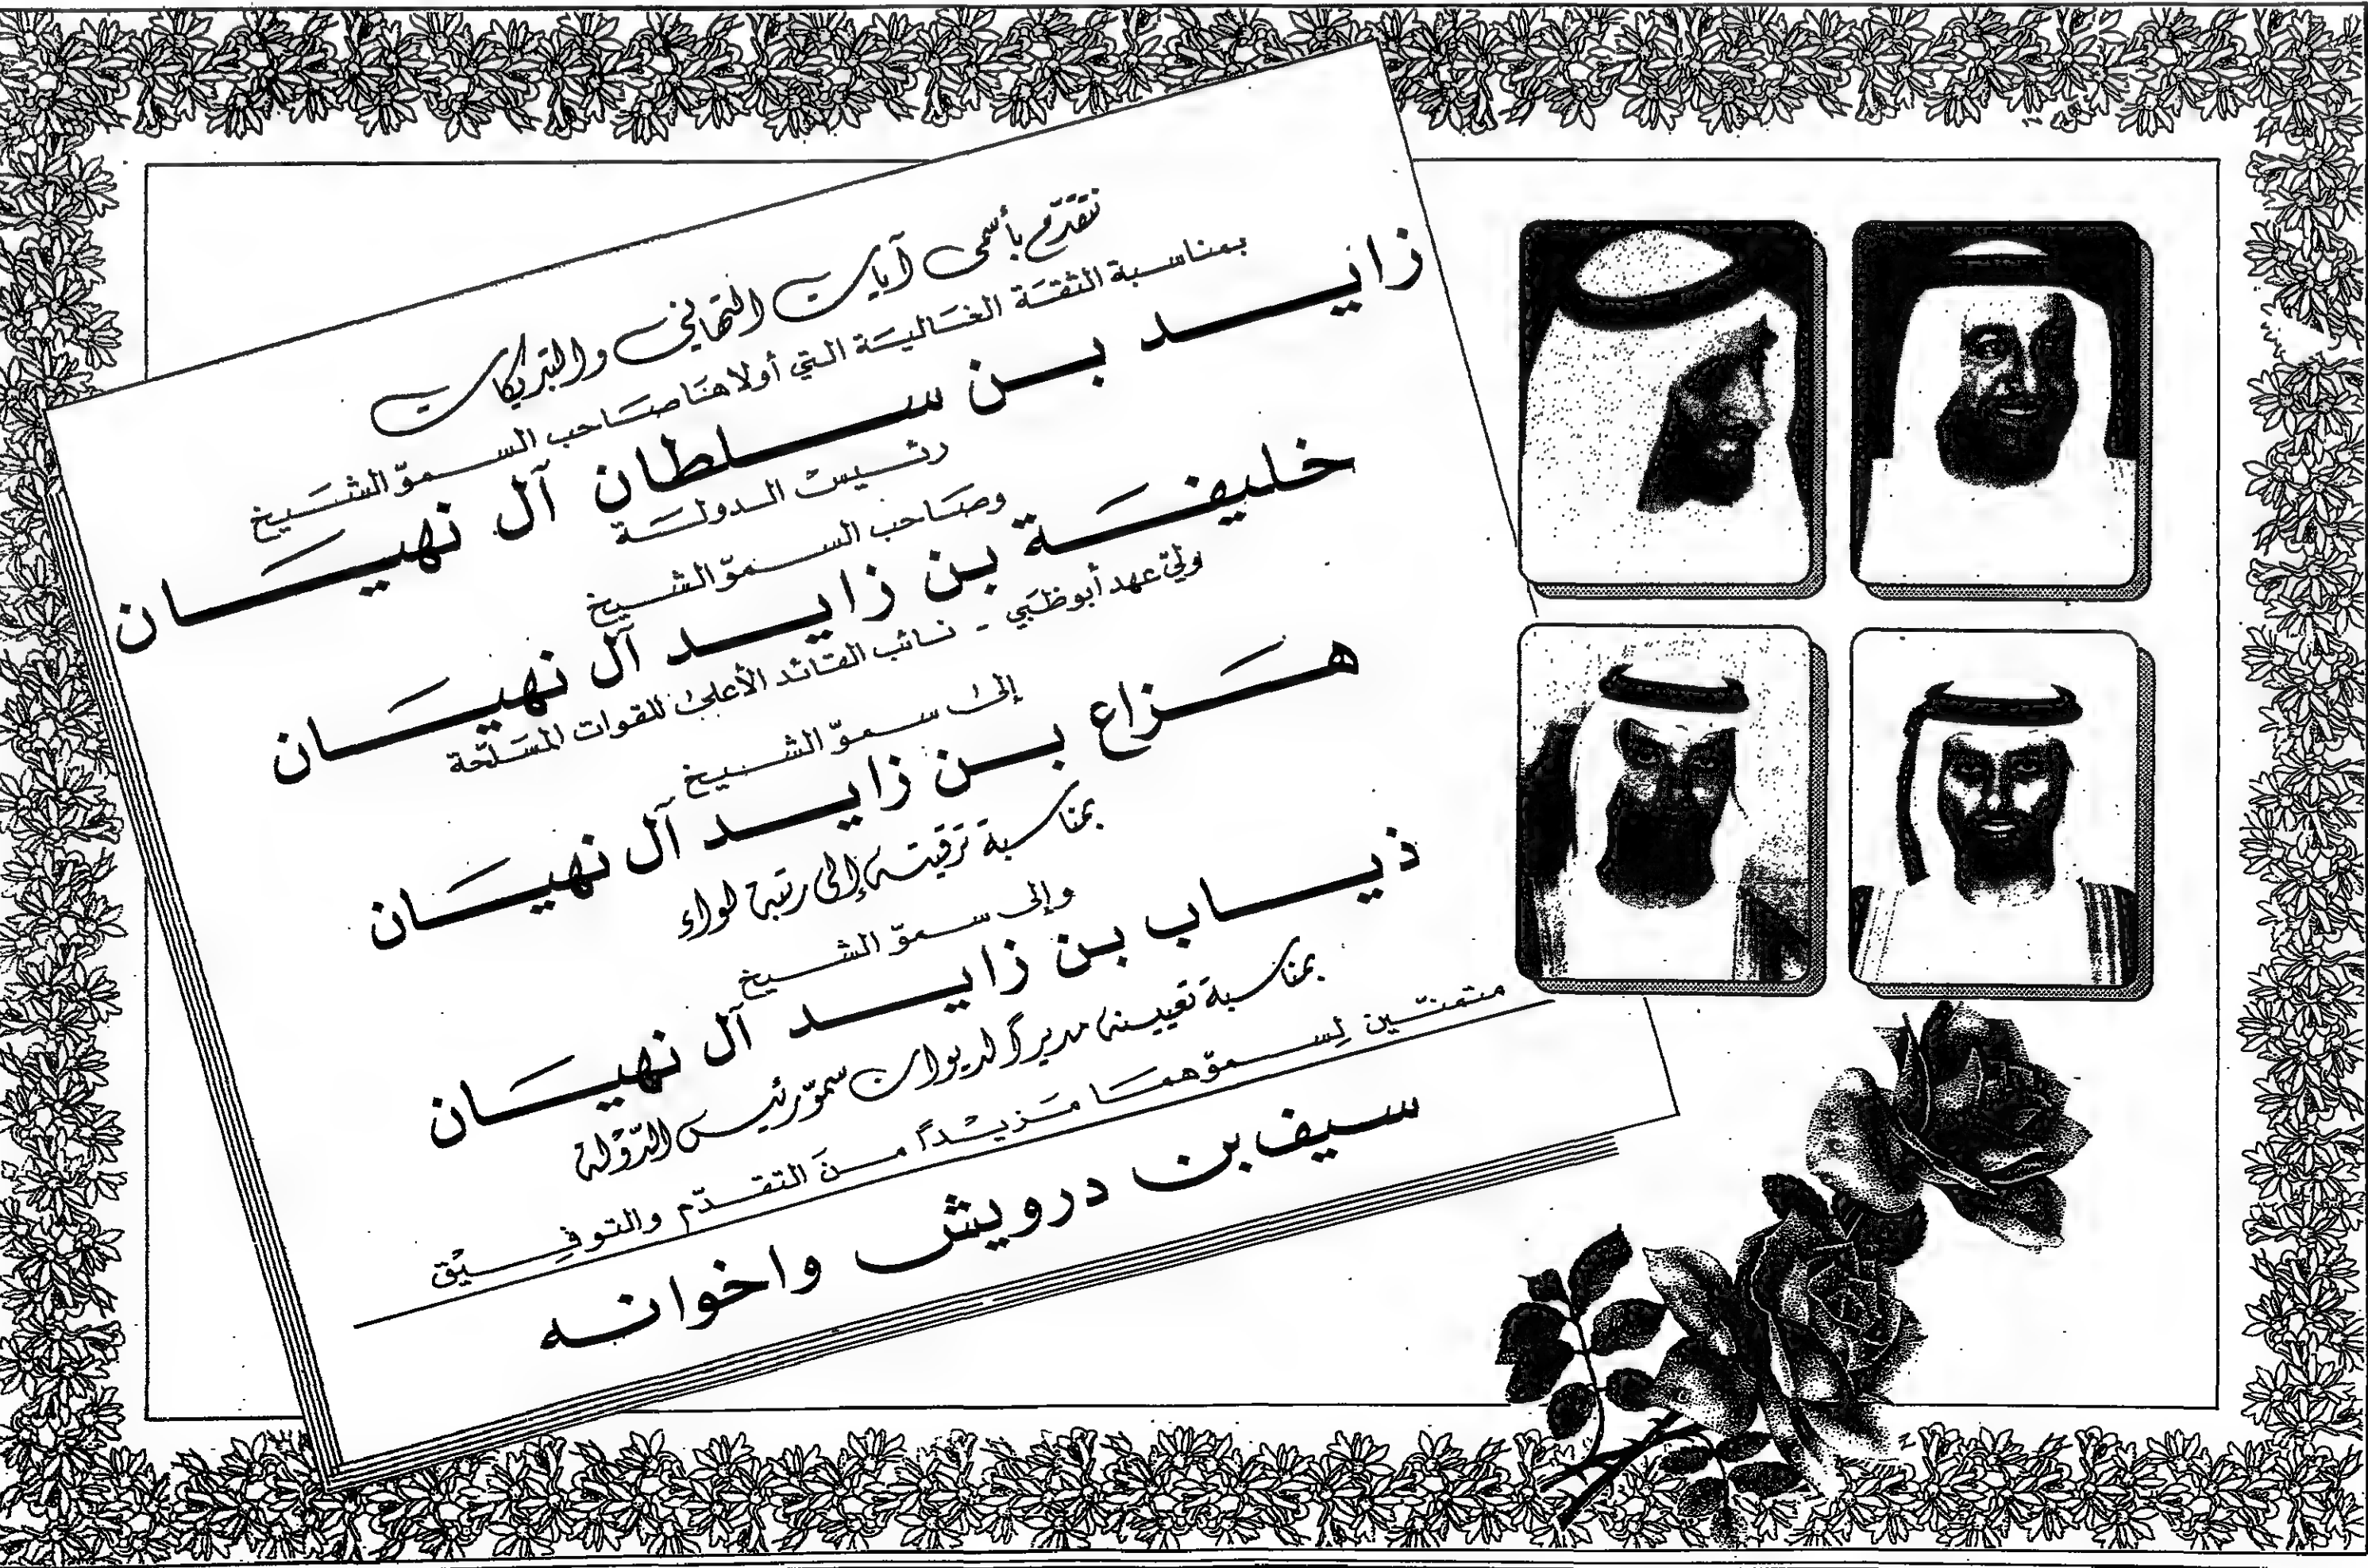 نتقدّم بأسمى آيات التهاني والتبريكات
بمناسبة الثقة الغالية التي أولاها صاحب السموّ الشيخ
زايد بن سلطان آل نهيان
رئيس الدولة
وصاحب السموّ الشيخ
خليفة بن زايد آل نهيان
وليّ عهد أبوظبي - نائب القائد الأعلى للقوات المسلّحة
إلى سموّ الشيخ
هزاع بن زايد آل نهيان
بمناسبة ترقيته إلى رتبة لواء
وإلى سموّ الشيخ
ذياب بن زايد آل نهيان
بمناسبة تعيينه مديراً لديوان سموّ رئيس الدّولة
متمنّين لسموّهما مزيداً من التقدّم والتوفيق
سيف بن درويش واخوانه